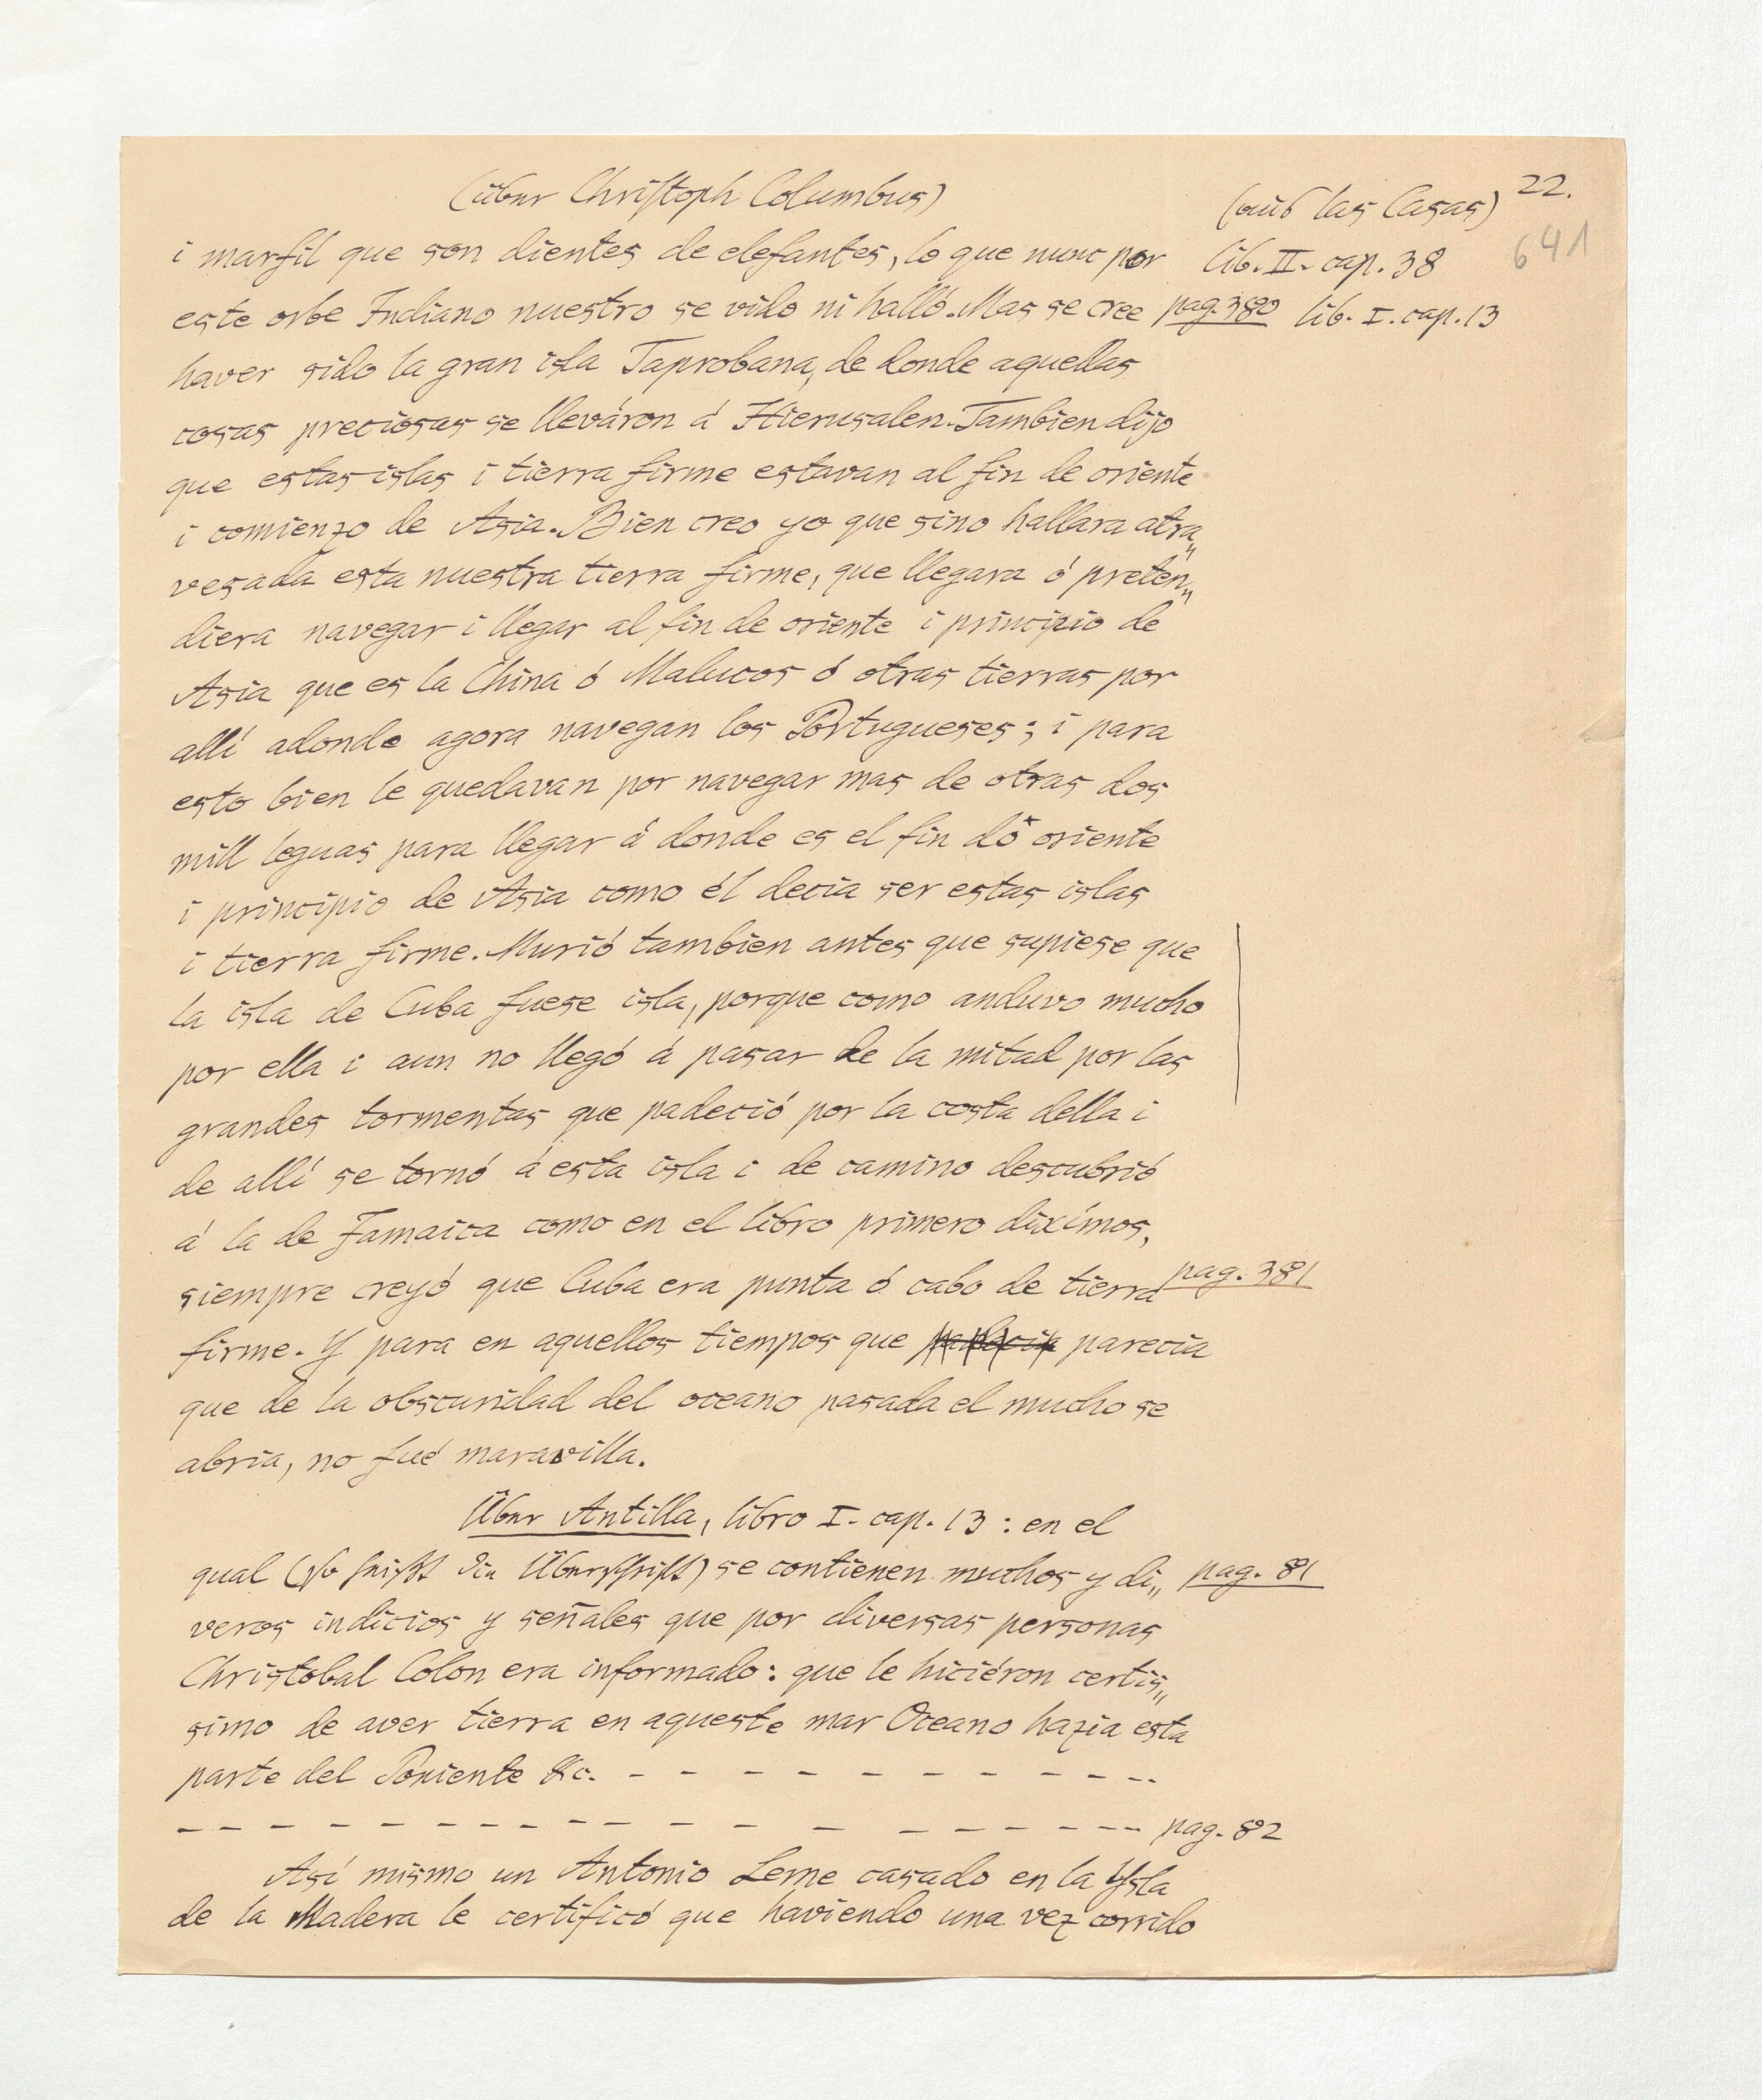 (über Christoph Columbus) (aus las Casas) 22.
641
i marfil que son dientes de elefantes, lo que nunc por lib. II. cap. 38
este orbe Indiano nuestro se vido ni halló. Mas se cree pag. 380 lib. I. cap. 13
haver sido la gran isla Taprobana, de donde aquellas
cosas preciosas se lleváron á Hierusalen. Tambien dijo
que estas islas i tierra firme estavan al fin de oriente
i comienzo de Asia. Bien creo yo que sino hallara atra„
vesada esta nuestra tierra firme, que llegara ó preten„
diera navegar i llegar al fin de oriente i principio de
Asia que es la China ó Malucos ó otras tierras por
allí adonde agora navegan los Portugueses; i para
esto bien le quedavan por navegar mas de otras dos
mill leguas para llegar á donde es el fin dó oriente
i principio de Asia como él decia ser estas islas
i tierra firme. Murió tambien antes que supiese que
la isla de Cuba fuese isla, porque como anduvo mucho
por ella i aun no llegó á pasar de la mitad por las
grandes tormentas que padeció por la costa della i
de allí se tornó á esta isla i de camino descubrió
á la de Jamaica como en el libro primero diximos,
siempre creyó que Cuba era punta ó cabo de tierra pag. 381
firme. Y para en aquellos tiempos que parecia
que de la obscuridad del oceano pasada el mucho se
abria, no fué maravilla.
Über Antilla, libro I. cap. 13 : en el
qual (so heißt die Überschrift) se contienen muchos y di„ pag. 81
veros indicios y señales que por diversas personas
Christobal Colon era informado: que le hiciéron certis„
simo de aver tierra en aqueste mar Oceano hazia esta
parte del Poniente &c. - - - - - - - - - - - - -
- - - - - - - - - - - - - - - - - - - - - pag. 82
Así mismo un Antonio Leme casado en la Ysla
de la Madera le certificó que haviendo una vez corrido